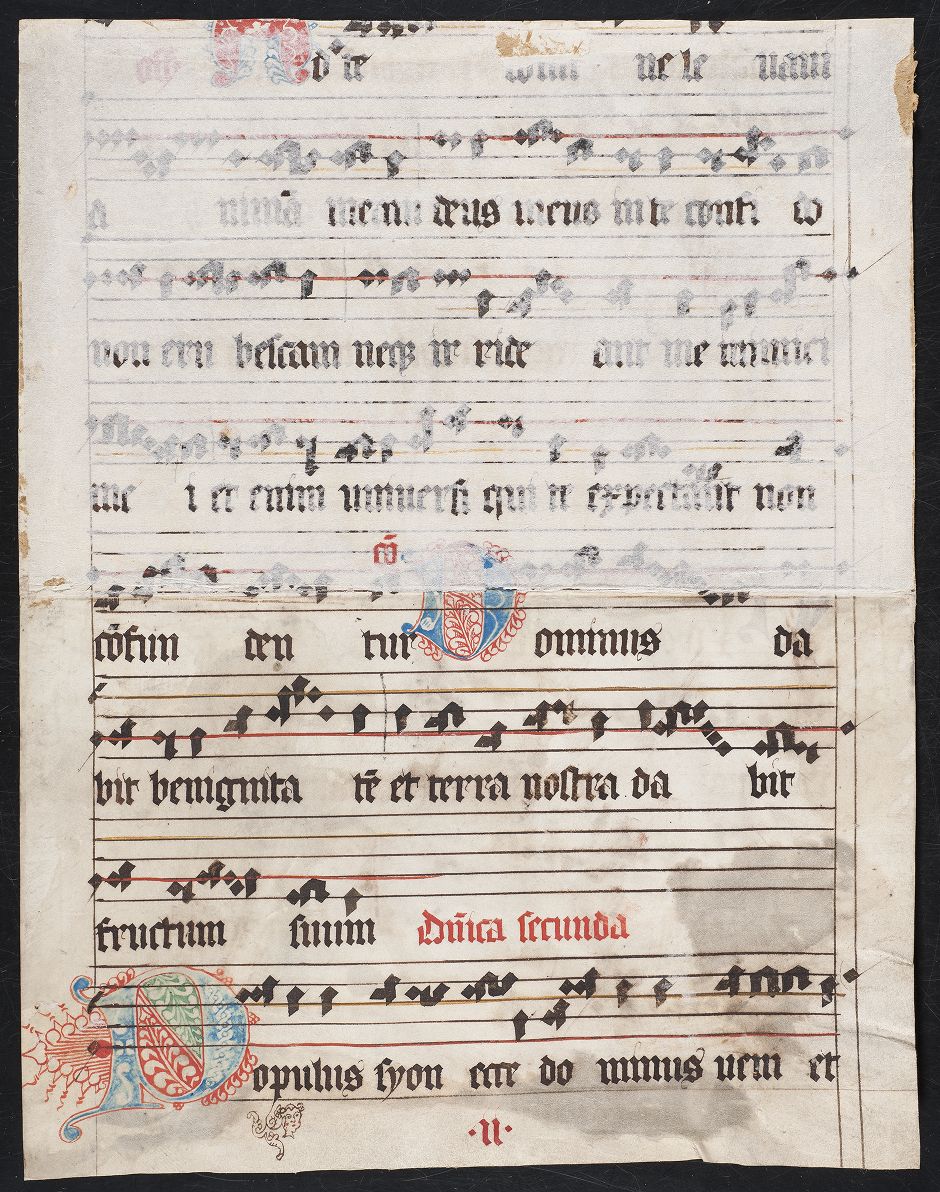 d te leuaui
a nimā meam deus meus in te confi do
non eru bescam neqȝ ir ride ant me inimici
me i et enim uniuersi qui te expectant non
cō
cōfun den tur Dominus da
bit benignita tē et terra nostra da bit
fructum suum Dn̄ica secunda
Populus syon ecce do minus ueni et
·II·